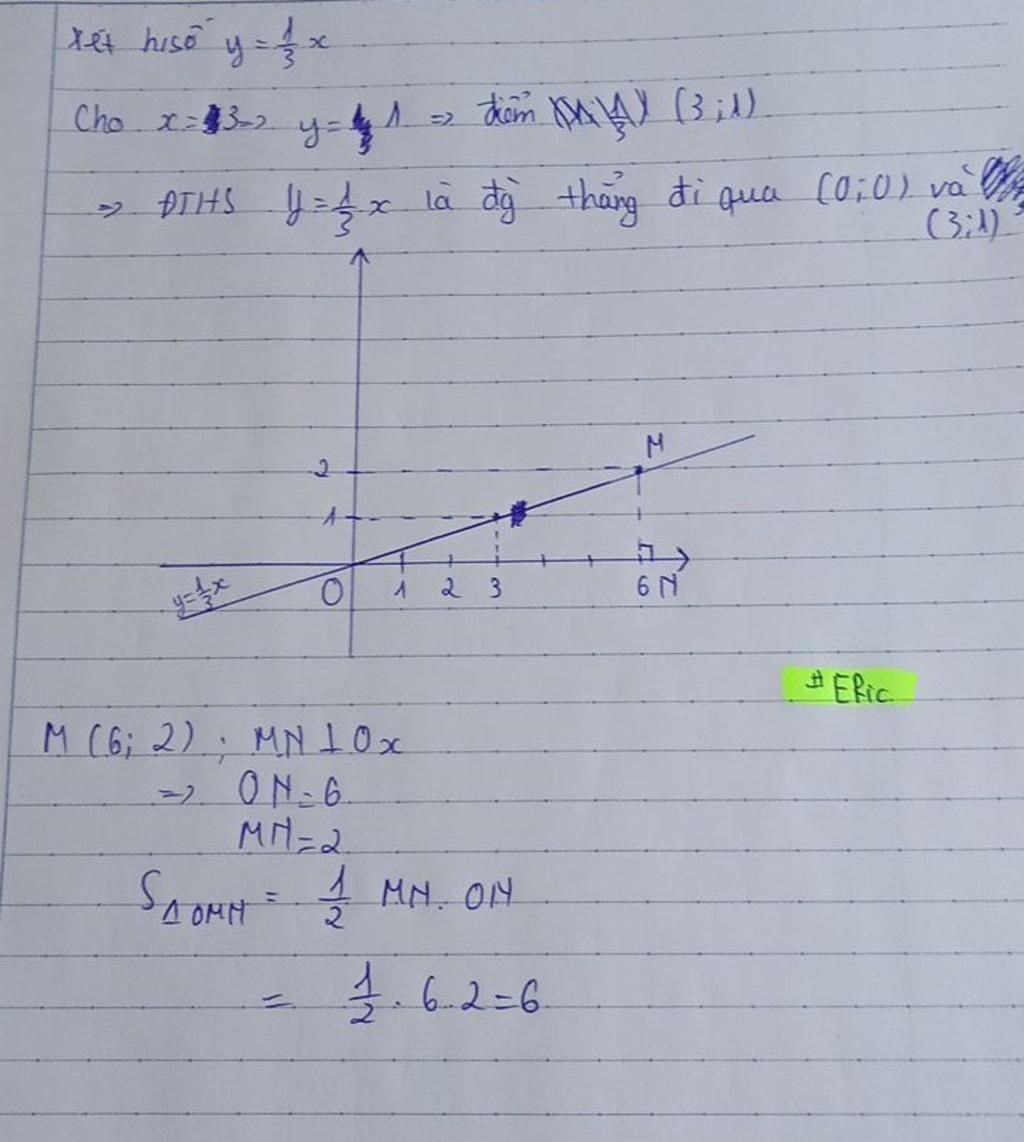 Xét h/số y = 1/3 x
Cho x = 3 => y = 1 => điểm (3;1)
=> ĐTHS y = 1/3 x là đg thẳng đi qua (0;0) và
(3;1)
M
2
1
O 1 2 3 6 N
y = 1/3 x
# ERic
M (6; 2) ; MN ⊥ Ox
=> ON = 6
MN = 2
S△OMN = 1/2 MN. ON
= 1/2 . 6. 2 = 6